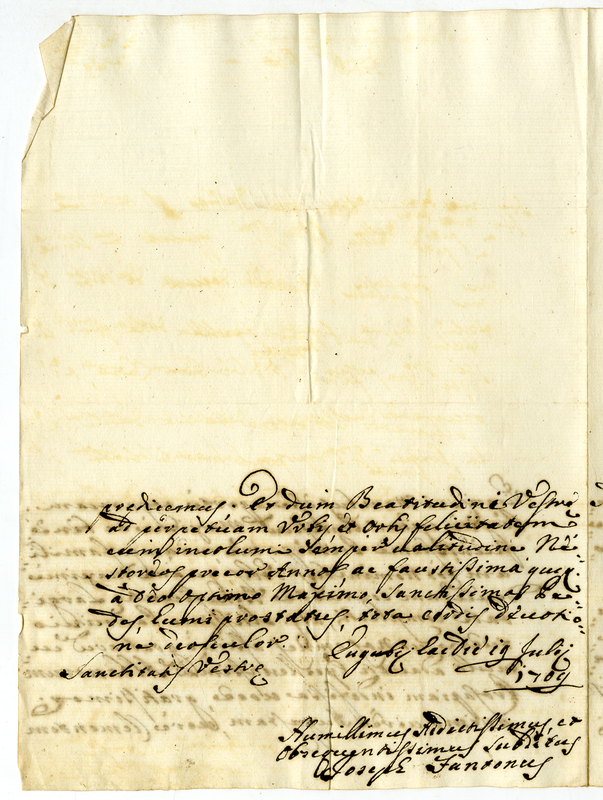 predicamus. Et dum Beatitudini Vestrę
ad perpetuam Urbis et Orbis felicitatem
cum incolumi semper ualitudine Ne-
storeos precor Annos ac faustissima quęq.
à Deo Optimo Maximo, Sanctissimos Pe-
des humi prostratus, tota cordis deuotio-
ne deosculor.
Eugubij hac die 19 Julij
1709
Sanctitatis Vestrę
Humillimus Addictissimus, et
Obsequentissimus Subditus
Joseph Fantonus